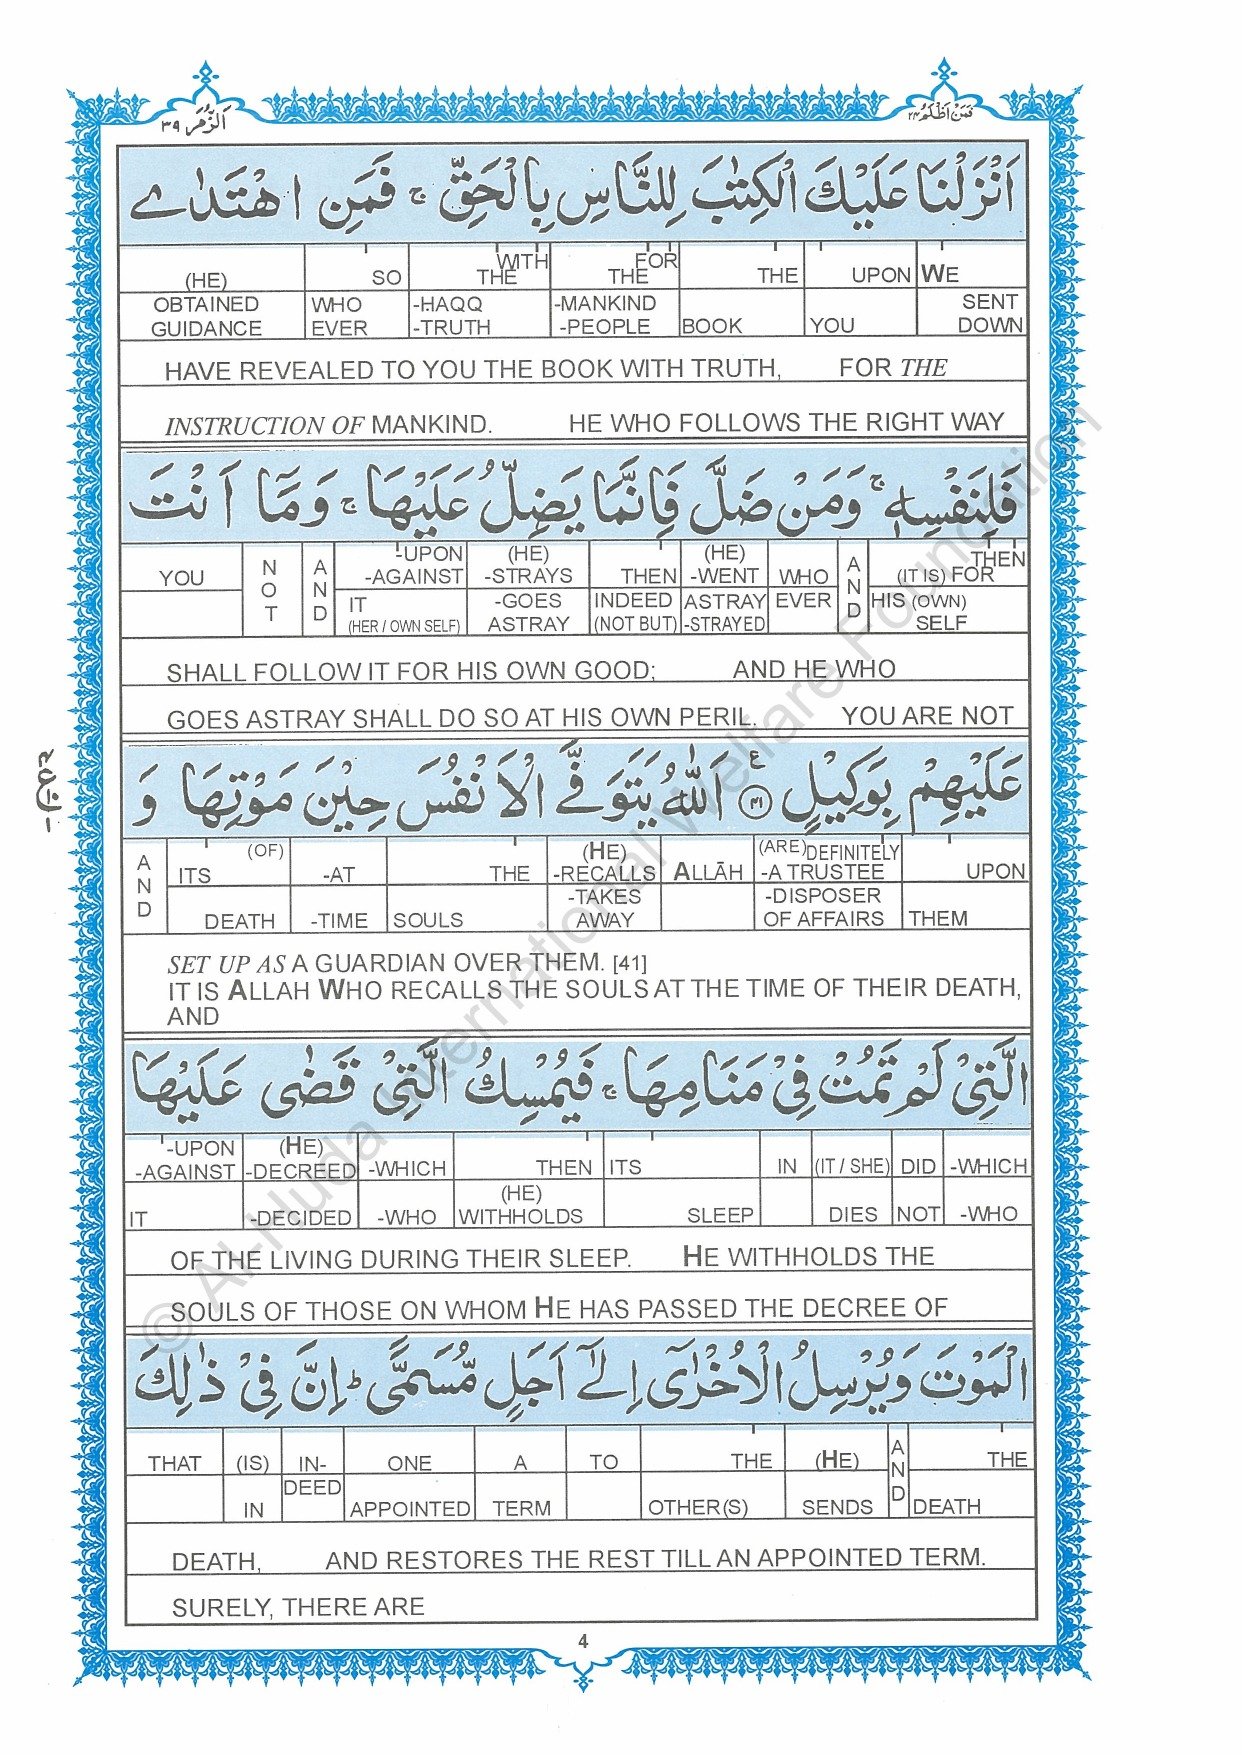 الزمر ٣٩
فمن اظلم ٢٤
اَنْزَلْنَا عَلَيْكَ الْكِتٰبَ لِلنَّاسِ بِالْحَقِّ ۚ فَمَنِ اهْتَدٰى
(HE) SO WITH THE FOR THE THE UPON WE
OBTAINED GUIDANCE WHO EVER -HAQQ -TRUTH -MANKIND -PEOPLE BOOK YOU SENT DOWN
HAVE REVEALED TO YOU THE BOOK WITH TRUTH, FOR THE
INSTRUCTION OF MANKIND. HE WHO FOLLOWS THE RIGHT WAY
فَلِنَفْسِهٖ ۚ وَمَنْ ضَلَّ فَاِنَّمَا يَضِلُّ عَلَيْهَا ۚ وَمَآ اَنْتَ
YOU NOT AND -UPON -AGAINST (HE) -STRAYS THEN (HE) -WENT WHO AND THEN (IT IS) FOR
IT (HER / OWN SELF) -GOES ASTRAY INDEED (NOT BUT) ASTRAY -STRAYED EVER HIS (OWN) SELF
SHALL FOLLOW IT FOR HIS OWN GOOD; AND HE WHO
GOES ASTRAY SHALL DO SO AT HIS OWN PERIL. YOU ARE NOT
عَلَيْهِمْ بِوَكِيْلٍ ٤١ ع اَللّٰهُ يَتَوَفَّى الْاَنْفُسَ حِيْنَ مَوْتِهَا وَ
AND ITS (OF) -AT THE (HE) -RECALLS ALLĀH (ARE) DEFINITELY -A TRUSTEE UPON
DEATH -TIME SOULS -TAKES AWAY -DISPOSER OF AFFAIRS THEM
SET UP AS A GUARDIAN OVER THEM. [41]
IT IS ALLAH WHO RECALLS THE SOULS AT THE TIME OF THEIR DEATH,
AND
الَّتِيْ لَمْ تَمُتْ فِيْ مَنَامِهَا ۚ فَيُمْسِكُ الَّتِيْ قَضٰى عَلَيْهَا
-UPON -AGAINST (HE) -DECREED -WHICH THEN ITS IN (IT / SHE) DID -WHICH
IT -DECIDED -WHO (HE) WITHHOLDS SLEEP DIES NOT -WHO
OF THE LIVING DURING THEIR SLEEP. HE WITHHOLDS THE
SOULS OF THOSE ON WHOM HE HAS PASSED THE DECREE OF
الْمَوْتَ وَيُرْسِلُ الْاُخْرٰٓى اِلٰٓى اَجَلٍ مُّسَمًّى ؕ اِنَّ فِيْ ذٰلِكَ
THAT (IS) IN- ONE A TO THE (HE) AND THE
IN DEED APPOINTED TERM OTHER(S) SENDS DEATH
DEATH, AND RESTORES THE REST TILL AN APPOINTED TERM.
SURELY, THERE ARE
4
© Al-Huda International Welfare Foundation